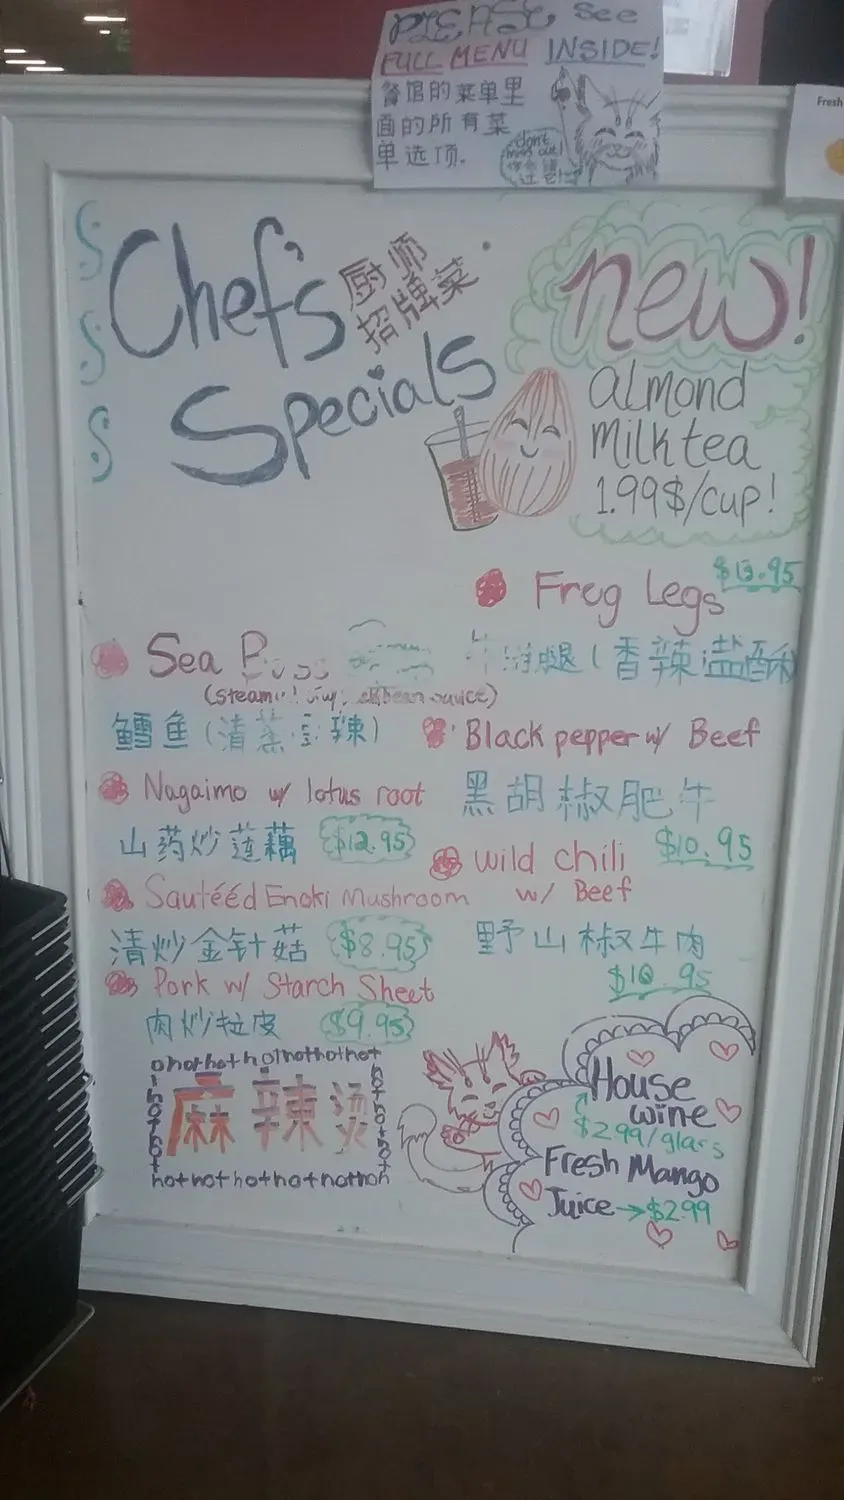 PLEASE See
FULL MENU INSIDE!
餐馆的菜单里
面的所有菜
单选项.
don't
miss out!
Fresh
Chef's
厨师
招牌菜
Specials
new!
almond
Milk tea
1.99$/cup!
Frog Legs $13.95
腿(香辣
Sea
鳕鱼(清蒸
辣)
Black pepper w/ Beef
黑胡椒肥牛
$10.95
Nagaimo w/ lotus root
山药炒莲藕 $12.95
wild chili
w/ Beef
野山椒牛肉
$10.95
Sautééd Enoki Mushroom
清炒金针菇 $8.95
Pork w/ Starch Sheet
肉炒拉皮 $9.95
hothothothothothot
麻辣烫
hothothothothothoth
House
wine
$2.99/glass
Fresh Mango
Juice → $2.99